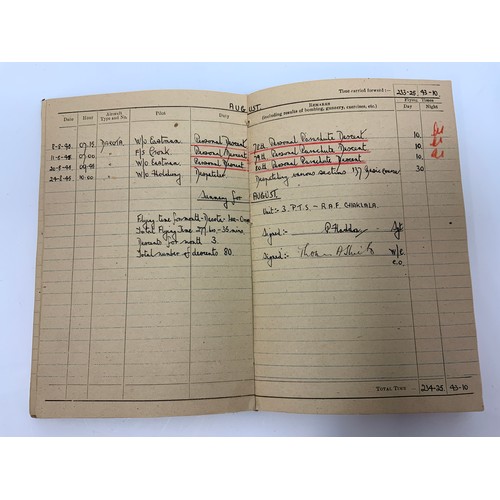 Time carried forward :— 233-25 43-10
AUGUST.
Date Hour Aircraft Type and No. Pilot Duty Remarks (including results of bombing, gunnery, exercises, etc.) Flying Times Day Night
07.15 Dakota W/o Eastman Personal Descent 78th Personal Parachute Descent 10
07.00 " F/S Personal Descent 79th Personal Parachute Descent 10
" W/o Eastman Personal Descent 80th Personal Parachute Descent 10
10.00 " W/o Despatcher Despatching various sections 137 course 30
Summary for AUGUST
Flying time for month - Dakota
Total Flying Time 277
Descents for month 3
Total number of descents 80.
Unit:- 3. P.T.S - R.A.F. CHAKLALA.
Signed:- Sgt
Signed:- W/C
C.O.
TOTAL TIME 234-25 43-10